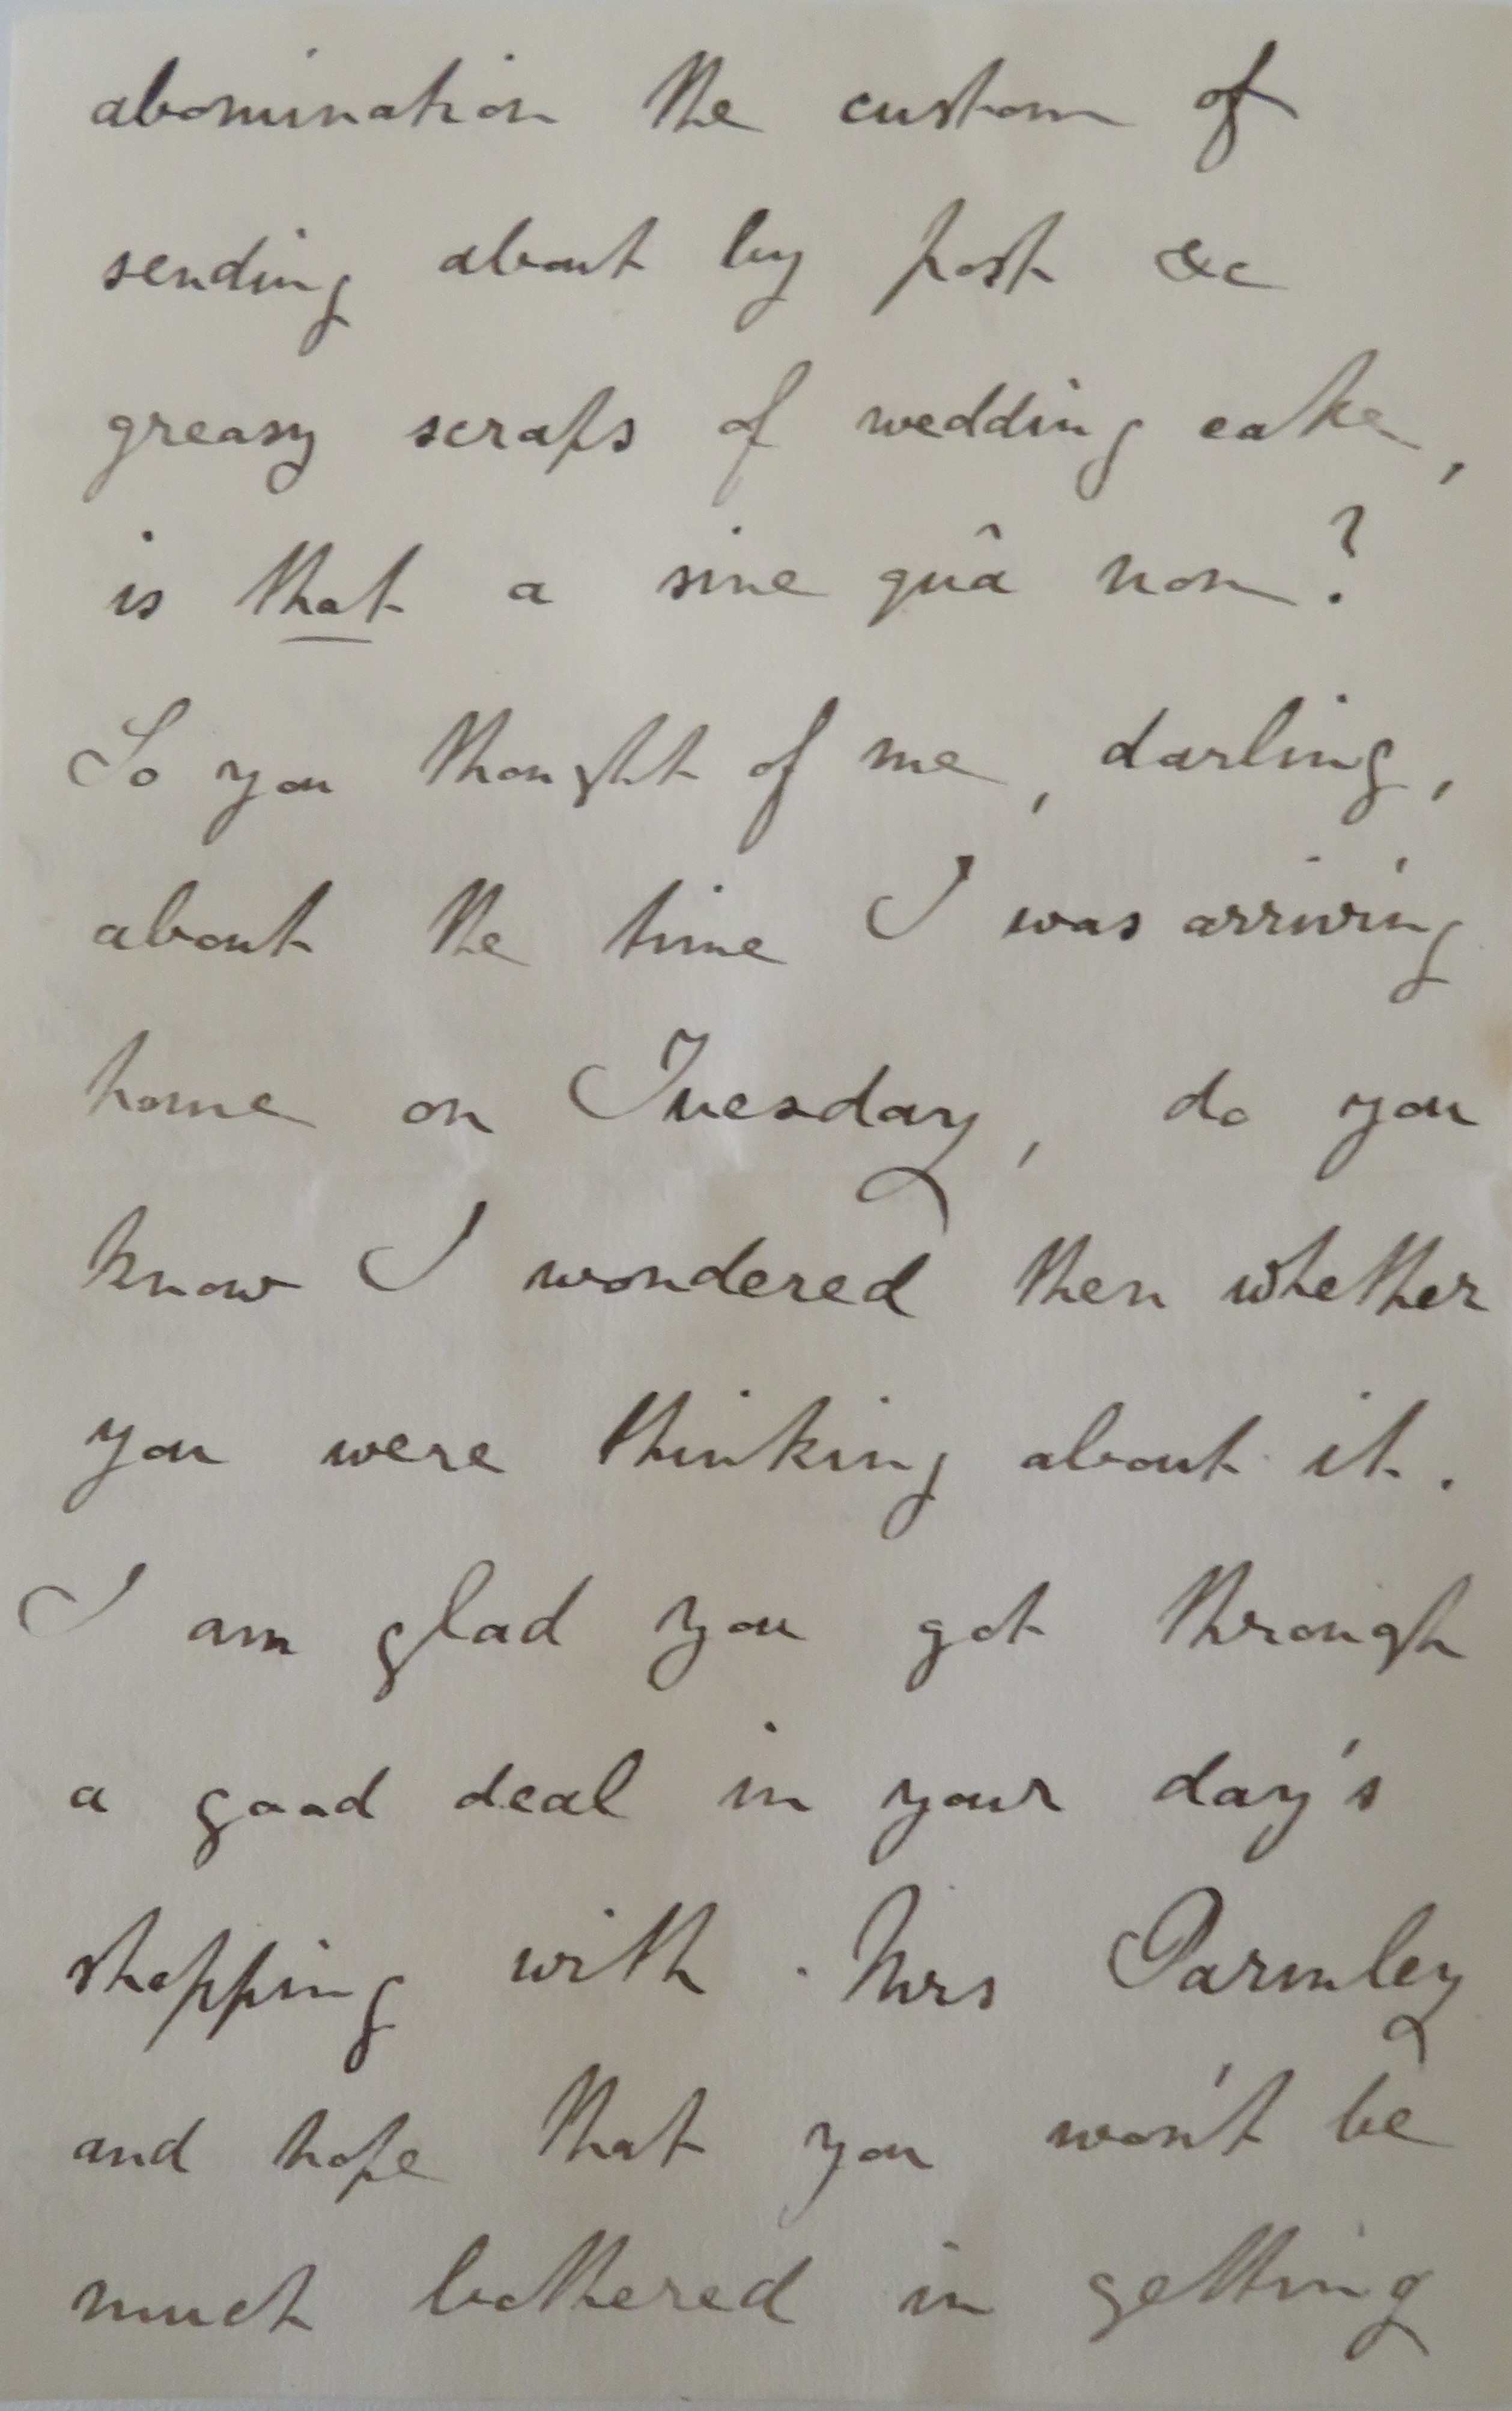 abomination the custom of
sending about by post &c
greasy scraps of wedding cake,
is that a sine quâ non?
So you thought of me, darling,
about the time I was arriving
home on Tuesday, do you
know I wondered then whether
you were thinking about it.
I am glad you got through
a good deal in your day's
shopping with Mrs Parmley
and hope that you won't be
much bothered in getting